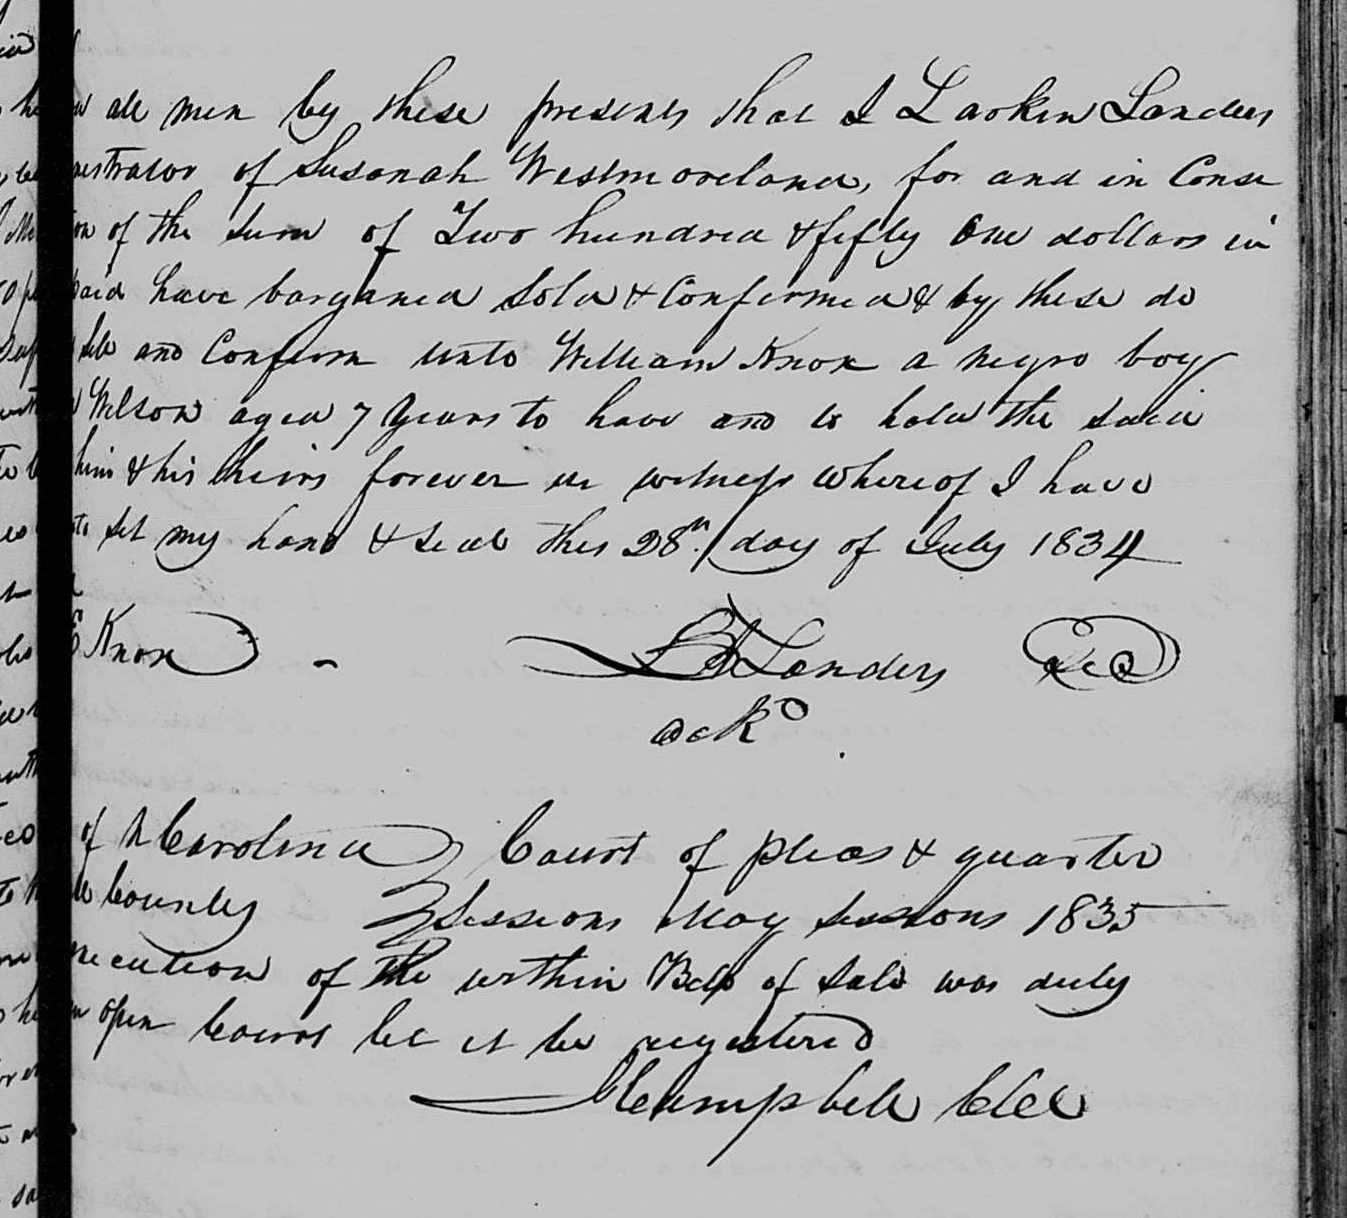 all men by these presents that I Larkin Landers
nistrator of Susanah Westmoreland, for and in Conse
on of the sum of Two hundred & fifty One dollars in
paid have barganed Sold & Confirmed & by these do
Sele and Confirm unto William Knox a negro boy
Wilson aged 7 Years to have and to hold the said
him & his heirs forever in witness whereof I have
set my hand & seal this 28th day of July 1834
Knox - L Landers Sea
ackd
of N Carolina Court of pleas & quarter
County Sessions May Sessions 1835
xecution of the within Bill of Sale was duly
open Court let it be registered
Campbell Clk